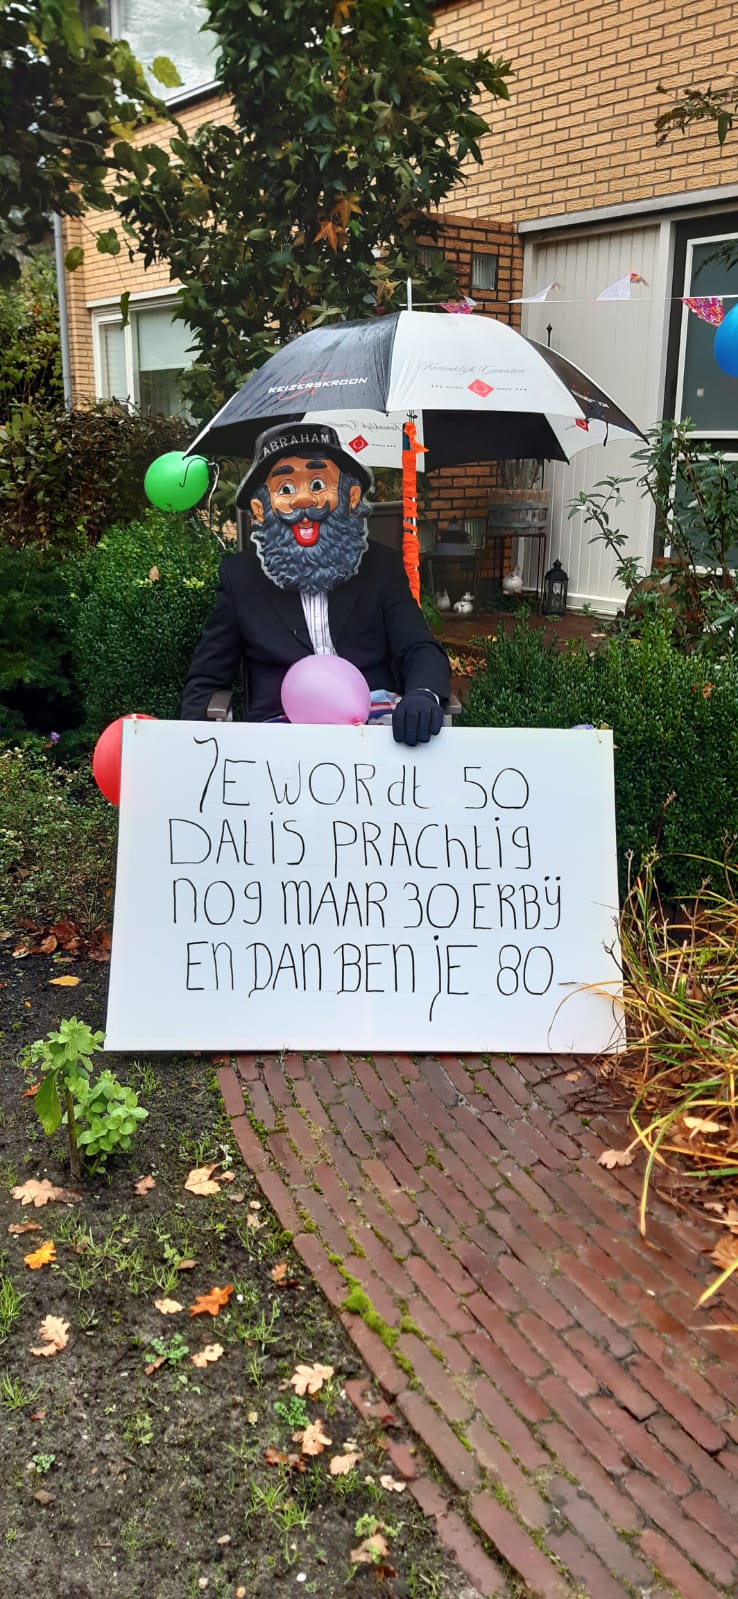 KEIZERSKROON
Koninklijk Genieten
ABRAHAM
JE WORdt 50
DAt iS PRAChtig
nog MAAR 30 ERBIJ
En DAn BEn jE 80